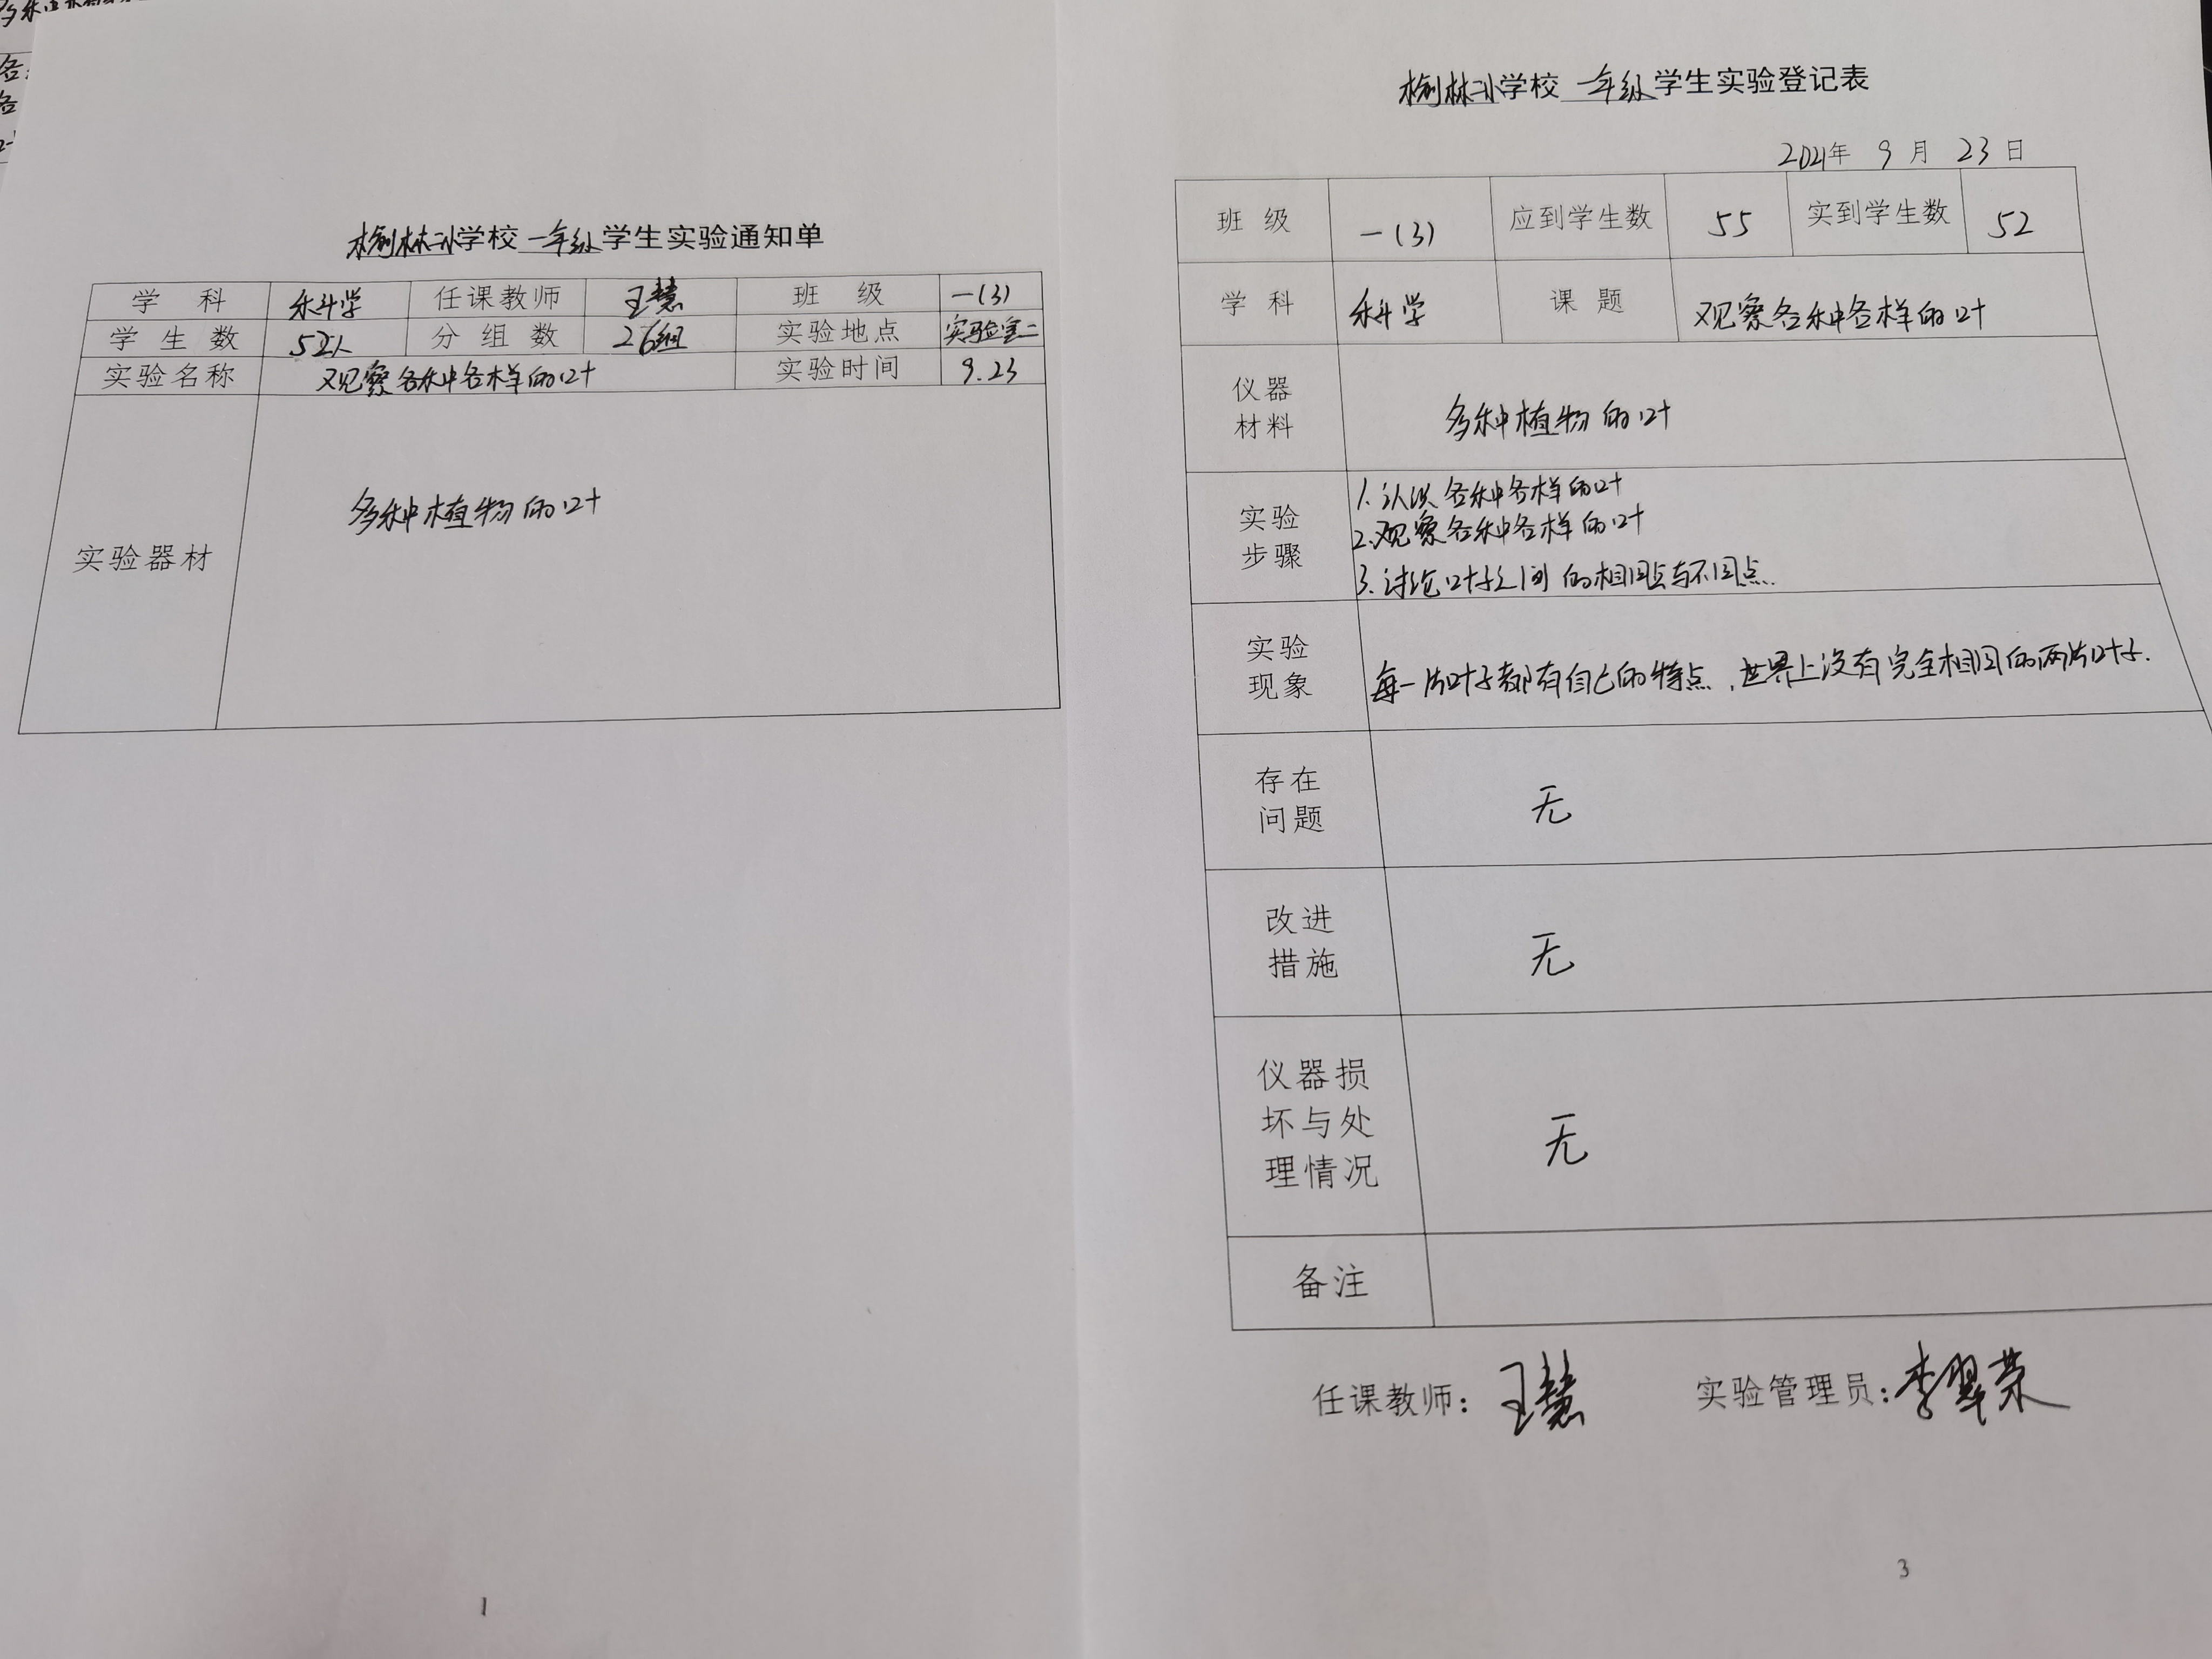 榆林三小学校一年级学生实验通知单
学 科 科学 任课教师 王慧 班 级 一(3)
学 生 数 52人 分 组 数 26组 实验地点 实验室二
实验名称 观察各种各样的叶 实验时间 9.23
实验器材 多种植物的叶
1
榆林三小学校一年级学生实验登记表
2021年 9 月 23 日
班 级 一(3) 应到学生数 55 实到学生数 52
学 科 科学 课 题 观察各种各样的叶
仪器
材料
多种植物的叶
实验
步骤
1.认识各种各样的叶
2.观察各种各样的叶
3.讨论叶子之间的相同点与不同点.
实验
现象
每一片叶子都有自己的特点,世界上没有完全相同的两片叶子.
存在
问题
无
改进
措施
无
仪器损
坏与处
理情况
无
备注
任课教师：王慧 实验管理员：李翠荣
3